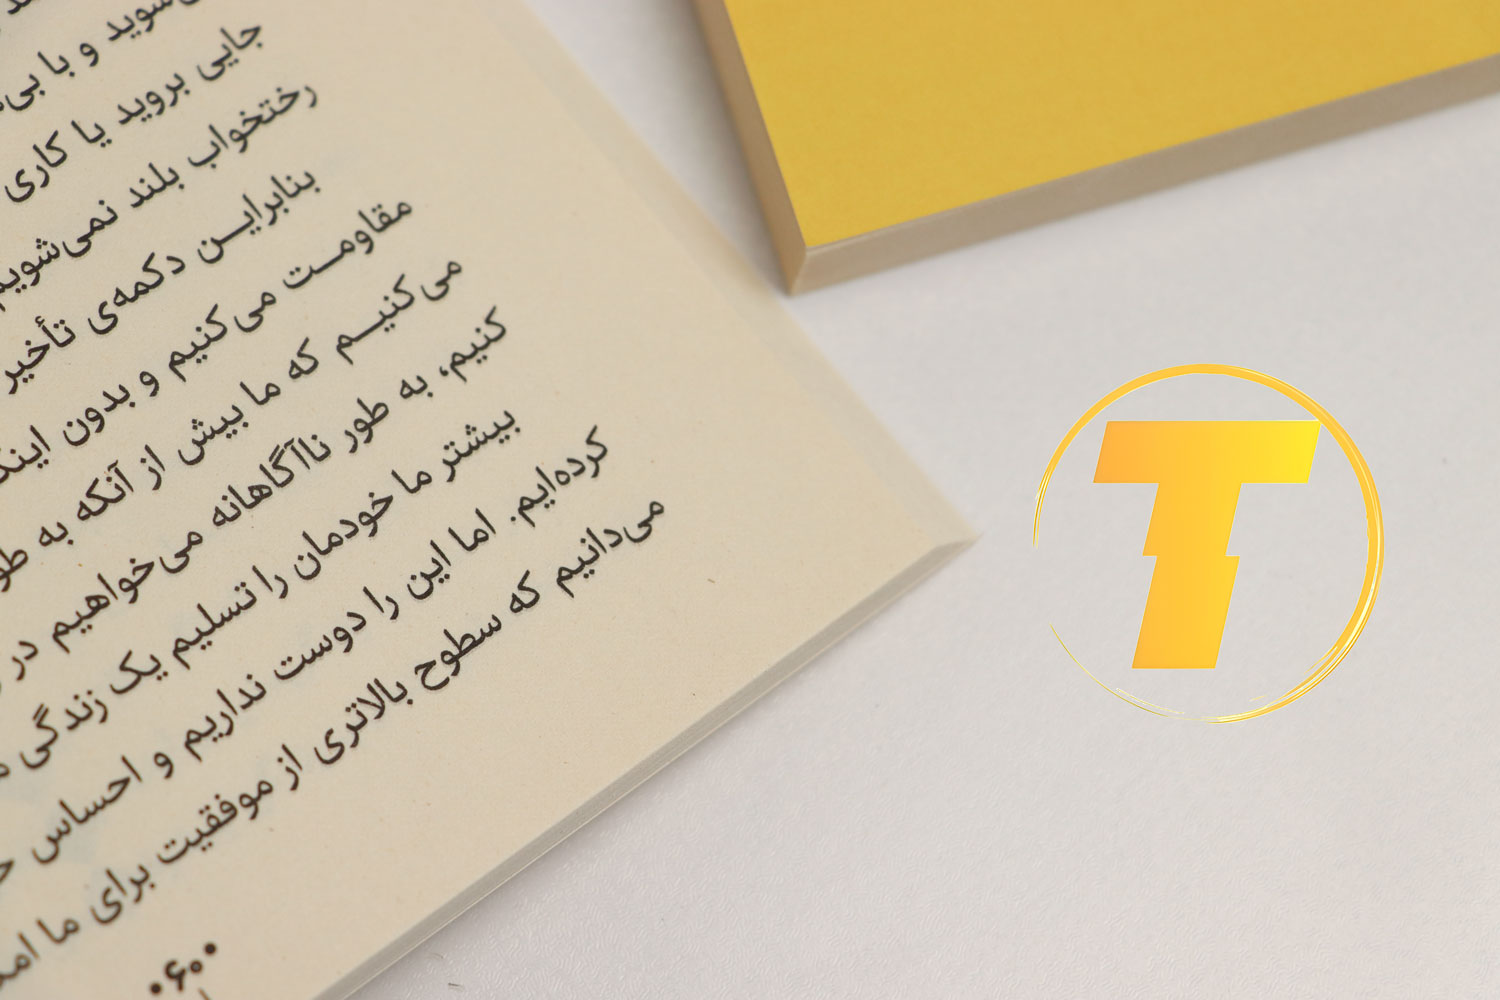 جایی بروید یا کاری
رختخواب بلند نمی‌شویم
بنابراین دکمه‌ی تأخیر
مقاومت می‌کنیم و بدون
می‌کنیم که ما بیش از آنکه به
کنیم، به طور ناآگاهانه می‌خواهیم در
بیشتر ما خودمان را تسلیم یک زندگی
کرده‌ایم. اما این را دوست نداریم و احساس
می‌دانیم که سطوح بالاتری از موفقیت برای ما
T